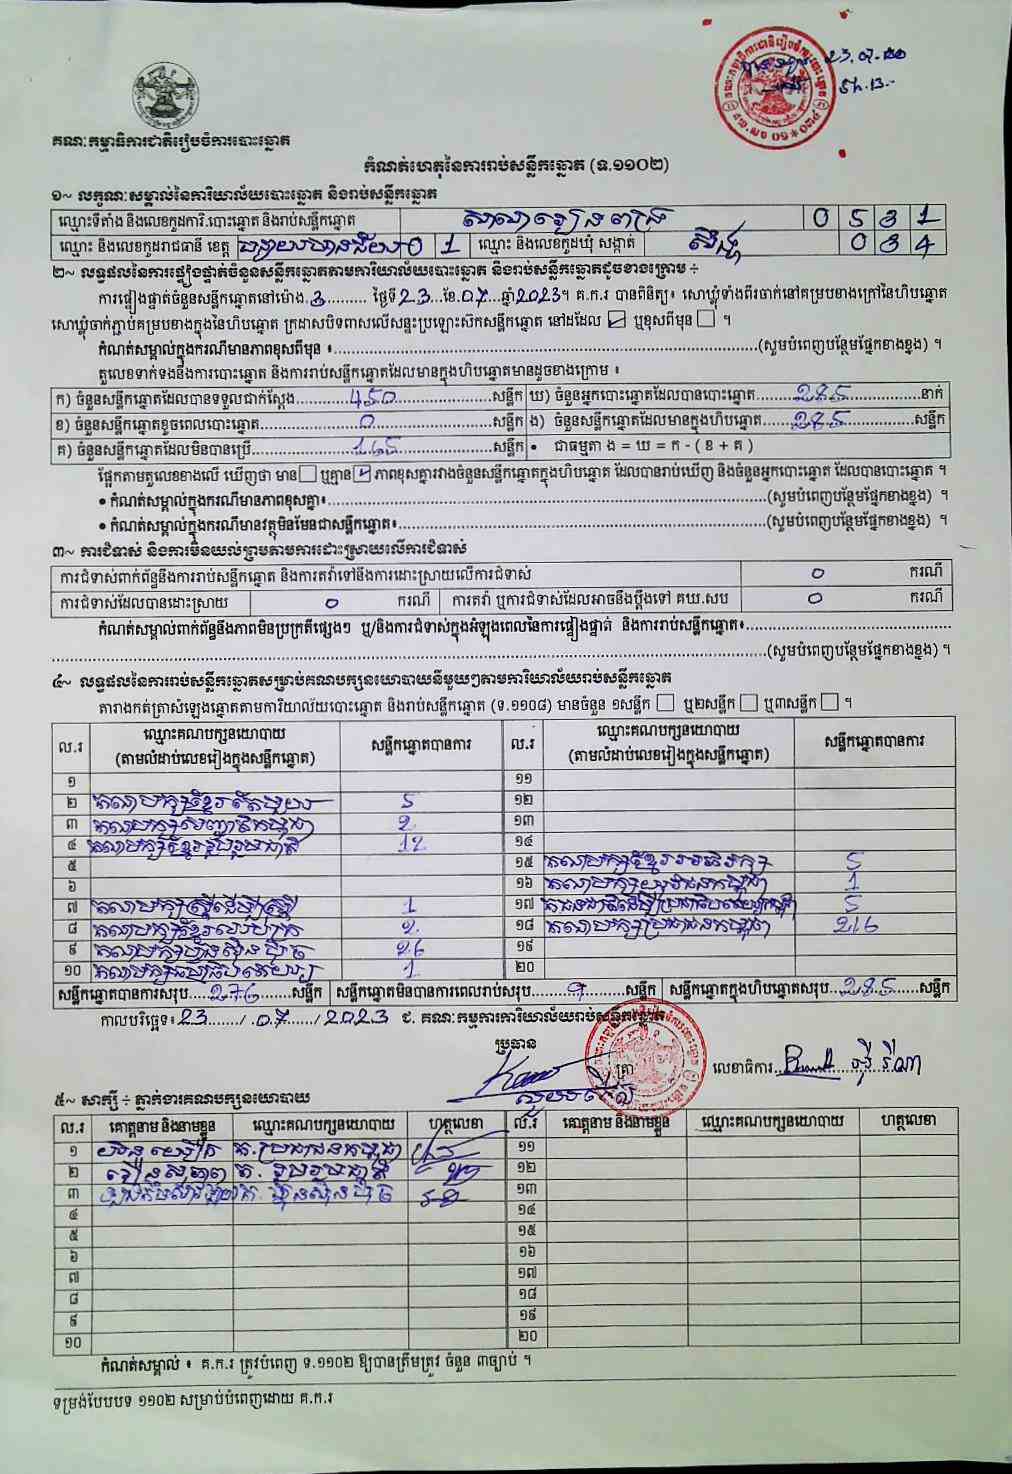 គណៈកម្មាធិការជាតិរៀបចំការបោះឆ្នោត
23.07.
5h.13.-
កំណត់ហេតុនៃការរាប់សន្លឹកឆ្នោត (ទ.១១០២)
១~ លក្ខណៈសម្គាល់នៃការិយាល័យបោះឆ្នោត និងរាប់សន្លឹកឆ្នោត
ឈ្មោះទីតាំង និងលេខកូដការិ.បោះឆ្នោត និងរាប់សន្លឹកឆ្នោត 0 5 3 1
ឈ្មោះ និងលេខកូដរាជធានី ខេត្ត បន្ទាយមានជ័យ 0 1 ឈ្មោះ និងលេខកូដឃុំ សង្កាត់ 0 3 4
២~ លទ្ធផលនៃការផ្ទៀងផ្ទាត់ចំនួនសន្លឹកឆ្នោតតាមការិយាល័យបោះឆ្នោត និងរាប់សន្លឹកឆ្នោតដូចខាងក្រោម ÷
ការផ្ទៀងផ្ទាត់ចំនួនសន្លឹកឆ្នោតនៅម៉ោង.3......... ថ្ងៃទី23...ខែ.07...ឆ្នាំ2023។ គ.ក.រ បានពិនិត្យ៖ សោឃ្លុំទាំងពីរចាក់នៅគម្របខាងក្រៅនៃហិបឆ្នោត
សោឃ្លុំចាក់ភ្ជាប់គម្របខាងក្នុងនៃហិបឆ្នោត ក្រដាសបិទពាសលើសន្ទះប្រឡោះស៊កសន្លឹកឆ្នោត នៅដដែល ☑ ឬខុសពីមុន ☐ ។
កំណត់សម្គាល់ក្នុងករណីមានភាពខុសពីមុន ៖........(សូមបំពេញបន្ថែមផ្នែកខាងខ្នង) ។
តួលេខទាក់ទងនឹងការបោះឆ្នោត និងការរាប់សន្លឹកឆ្នោតដែលមានក្នុងហិបឆ្នោតមានដូចខាងក្រោម ៖
ក) ចំនួនសន្លឹកឆ្នោតដែលបានទទួលជាក់ស្តែង........450........សន្លឹក ឃ) ចំនួនអ្នកបោះឆ្នោតដែលបានបោះឆ្នោត........285........នាក់
ខ) ចំនួនសន្លឹកឆ្នោតខូចពេលបោះឆ្នោត........0........សន្លឹក ង) ចំនួនសន្លឹកឆ្នោតដែលមានក្នុងហិបឆ្នោត........285........សន្លឹក
គ) ចំនួនសន្លឹកឆ្នោតដែលមិនបានប្រើ........165........សន្លឹក • ជាធម្មតា ង = ឃ = ក - ( ខ + គ )
ផ្អែកតាមតួលេខខាងលើ ឃើញថា មាន ☐ ឬគ្មាន ☑ ភាពខុសគ្នារវាងចំនួនសន្លឹកឆ្នោតក្នុងហិបឆ្នោត ដែលបានរាប់ឃើញ និងចំនួនអ្នកបោះឆ្នោត ដែលបានបោះឆ្នោត ។
• កំណត់សម្គាល់ក្នុងករណីមានភាពខុសគ្នា៖........(សូមបំពេញបន្ថែមផ្នែកខាងខ្នង) ។
• កំណត់សម្គាល់ក្នុងករណីមានវត្ថុមិនមែនជាសន្លឹកឆ្នោត៖........(សូមបំពេញបន្ថែមផ្នែកខាងខ្នង) ។
៣~ ការជំទាស់ និងការមិនយល់ព្រមតាមការដោះស្រាយលើការជំទាស់
ការជំទាស់ពាក់ព័ន្ធនឹងការរាប់សន្លឹកឆ្នោត និងការតវ៉ាទៅនឹងការដោះស្រាយលើការជំទាស់ 0 ករណី
ការជំទាស់ដែលបានដោះស្រាយ 0 ករណី ការតវ៉ា ឬការជំទាស់ដែលអាចនឹងប្តឹងទៅ គឃ.សប 0 ករណី
កំណត់សម្គាល់ពាក់ព័ន្ធនឹងភាពមិនប្រក្រតីផ្សេងៗ ឬ/និងការជំទាស់ក្នុងអំឡុងពេលនៃការផ្ទៀងផ្ទាត់ និងការរាប់សន្លឹកឆ្នោត៖........
........(សូមបំពេញបន្ថែមផ្នែកខាងខ្នង) ។
៤~ លទ្ធផលនៃការរាប់សន្លឹកឆ្នោតសម្រាប់គណបក្សនយោបាយនីមួយៗតាមការិយាល័យរាប់សន្លឹកឆ្នោត
តារាងកត់ត្រាសំឡេងឆ្នោតតាមការិយាល័យបោះឆ្នោត និងរាប់សន្លឹកឆ្នោត (ទ.១១០៨) មានចំនួន ១សន្លឹក ☐ ឬ២សន្លឹក ☐ ឬ៣សន្លឹក ☐ ។
ល.រ ឈ្មោះគណបក្សនយោបាយ (តាមលំដាប់លេខរៀងក្នុងសន្លឹកឆ្នោត) សន្លឹកឆ្នោតបានការ ល.រ ឈ្មោះគណបក្សនយោបាយ (តាមលំដាប់លេខរៀងក្នុងសន្លឹកឆ្នោត) សន្លឹកឆ្នោតបានការ
១ ១១
២ គណបក្សខ្មែរតែមួយ 5 ១២
៣ 2 ១៣
៤ គណបក្សខ្មែររួបរួមជាតិ 12 ១៤
៥ ១៥ គណបក្សខ្មែរ 5
៦ ១៦ គណបក្សយុវជនកម្ពុជា 1
៧ គណបក្សស្ត្រីដើម្បីស្ត្រី 1 ១៧ 5
៨ គណបក្សខ្មែរ 2 ១៨ គណបក្សប្រជាជនកម្ពុជា 216
៩ គណបក្សហ៊្វុនស៊ិនប៉ិច 26 ១៩
១០ គណបក្សប្រជាធិបតេយ្យ 1 ២០
សន្លឹកឆ្នោតបានការសរុប....276.......សន្លឹក សន្លឹកឆ្នោតមិនបានការពេលរាប់សរុប........9........សន្លឹក សន្លឹកឆ្នោតក្នុងហិបឆ្នោតសរុប....285......សន្លឹក
កាលបរិច្ឆេទ៖ 23......./.07....../2023 ជ. គណៈកម្មការការិយាល័យរាប់សន្លឹកឆ្នោត
ប្រធាន
ត្រា
លេខាធិការ
៥~ សាក្សី ÷ ភ្នាក់ងារគណបក្សនយោបាយ
ល.រ គោត្តនាម និងនាមខ្លួន ឈ្មោះគណបក្សនយោបាយ ហត្ថលេខា ល.រ គោត្តនាម និងនាមខ្លួន ឈ្មោះគណបក្សនយោបាយ ហត្ថលេខា
១ គ.ប្រជាជនកម្ពុជា ១១
២ គ. រួបរួមជាតិ ១២
៣ គ. ហ៊្វុនស៊ិនប៉ិច ១៣
៤ ១៤
៥ ១៥
៦ ១៦
៧ ១៧
៨ ១៨
៩ ១៩
១០ ២០
កំណត់សម្គាល់ ៖ គ.ក.រ ត្រូវបំពេញ ទ.១១០២ ឱ្យបានត្រឹមត្រូវ ចំនួន ៣ច្បាប់ ។
ទម្រង់បែបបទ ១១០២ សម្រាប់បំពេញដោយ គ.ក.រ